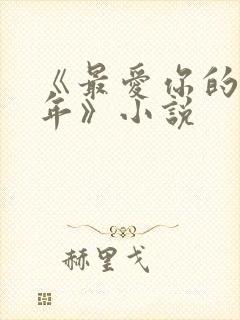 《最爱你的
年》小説
赫里戈